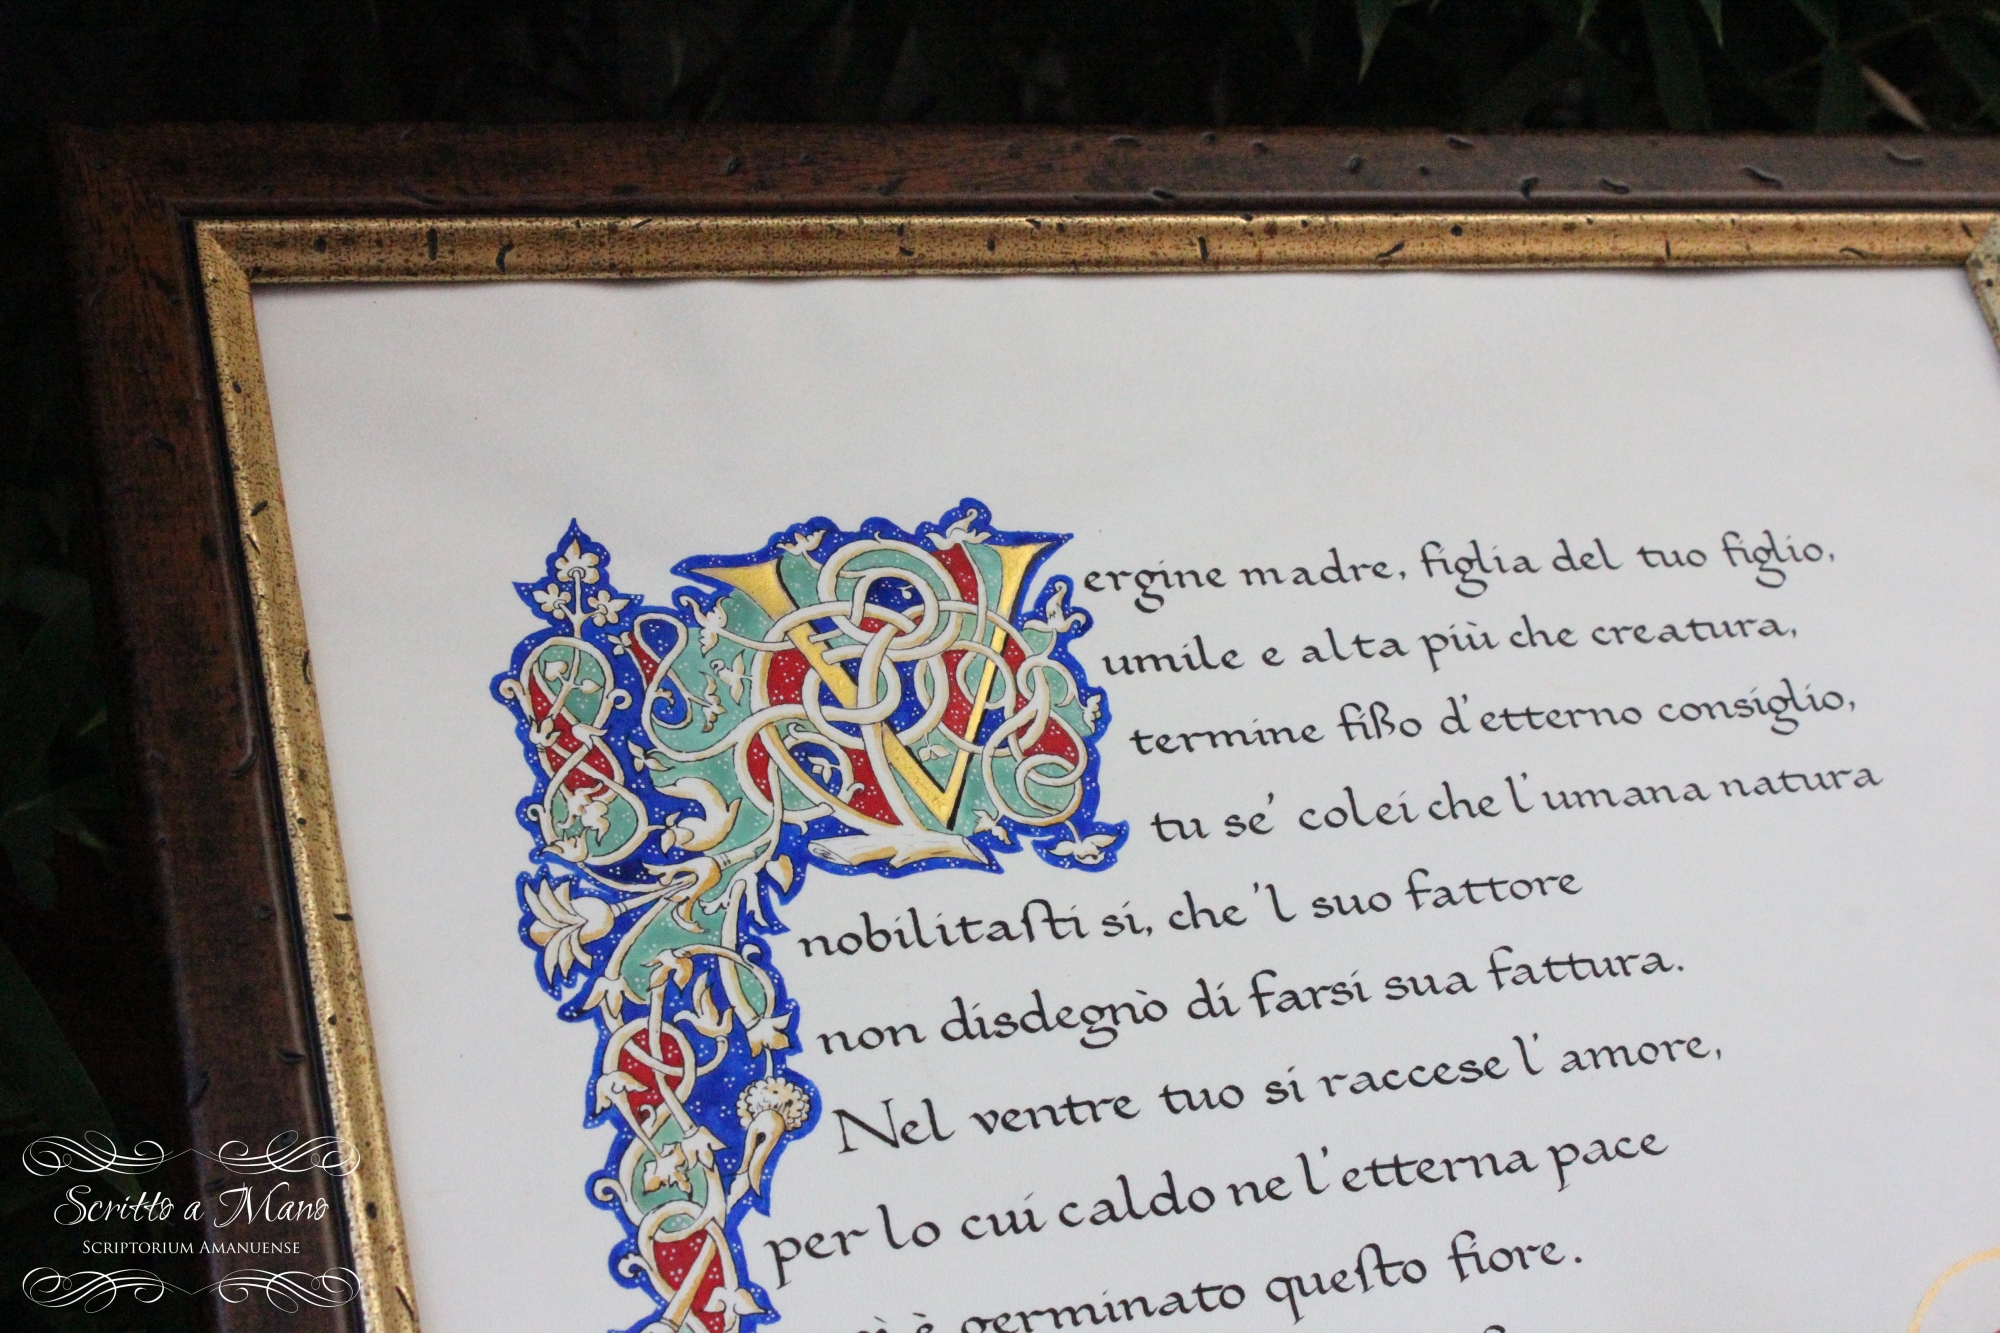 Vergine madre, figlia del tuo figlio,
umile e alta più che creatura,
termine fißo d'etterno consiglio,
tu se' colei che l'umana natura
nobilitaſti sí, che 'l suo fattore
non disdegnò di farsi sua fattura.
Nel ventre tuo si raccese l'amore,
per lo cui caldo ne l'etterna pace
è germinato queſto fiore.
Scritto a Mano
SCRIPTORIUM AMANUENSE